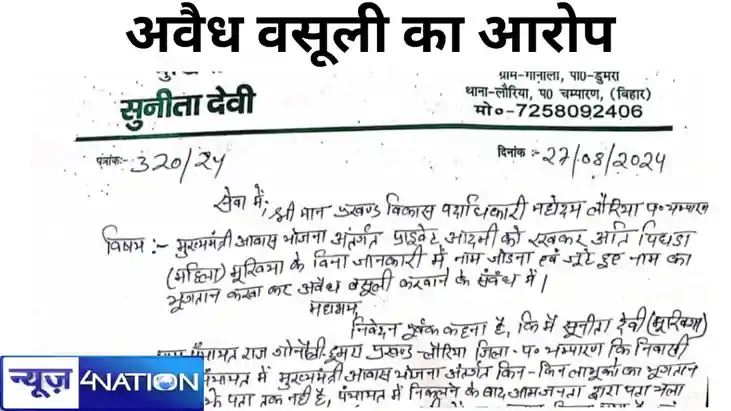 अवैध वसूली का आरोप
सुनीता देवी
ग्राम-गोनौली, पो०-डुमरा
थाना-लौरिया, प० चम्पारण, (बिहार)
मो०-7258092406
पत्रांक:- 320/24
दिनांक :- 27/08/2024
सेवा में,
श्री मान प्रखण्ड विकास पदाधिकारी महोदय लौरिया प० चम्पारण
विषय :- मुख्यमंत्री आवास योजना अंतर्गत प्राइवेट आदमी को रखकर अति पिछड़ा
(महिला) मुखिया के बिना जानकारी में नाम जोड़ना एवं जूटे हुए नाम का
भुगतान करवा कर अवैध वसूली करवाने के संबंध में।
महाशय
निवेदन पूर्वक कहना है, कि मैं सुनीता देवी (मुखिया)
पंचायत राज गोनौली डुमरा प्रखण्ड-लौरिया जिला-प० चम्पारण कि निवासी
पंचायत में मुख्यमंत्री आवास योजना अंतर्गत किन-किन लाभुकों का भुगतान
पता तक नहीं है, पंचायत में निकलने के बाद आम जनता द्वारा पता चला
न्यूज़ 4NATION